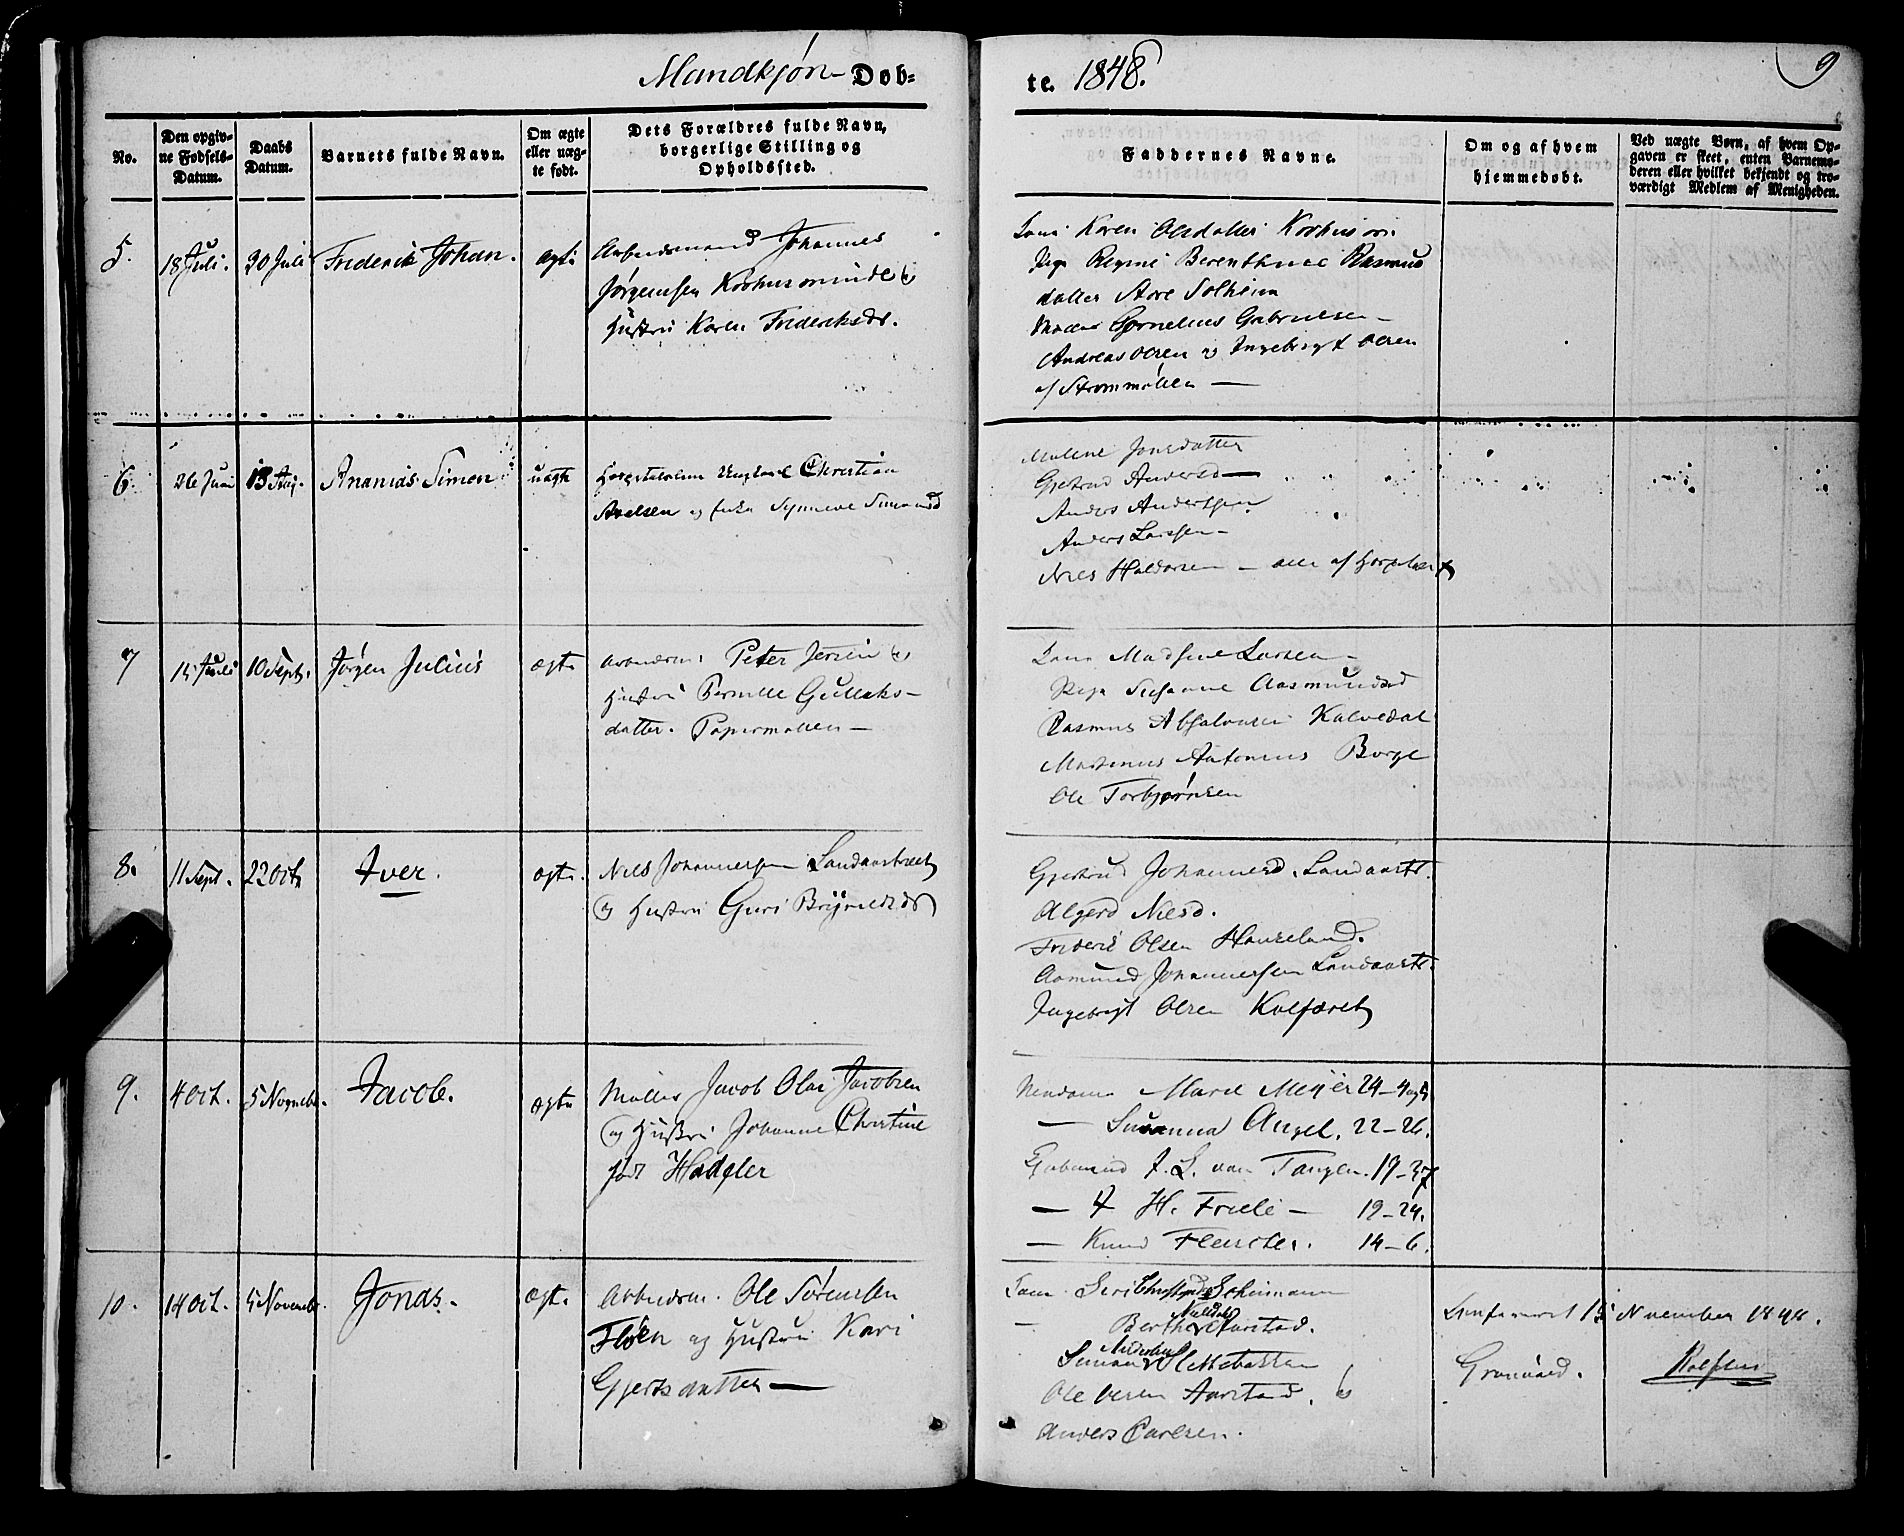 Mandkjøn Døb-
te. 1848.
9
No.
Den opgiv-
ne Fødsels-
Datum.
Daabs
Datum.
Barnets fulde Navn.
Om ægte
eller uæg-
te født.
Dets Forældres fulde Navn,
borgerlige Stilling og
Opholdssted.
Faddernes Navne.
Om og af hvem
hjemmedøbt.
Ved uægte Børn, af hvem Op-
gaven er skeet, enten Varnemo-
deren eller hvilket bekjendt og tro-
værdigt Medlem af Menigheden.
5.
18 Juli.
20 Juli
Frederik Johan.
ægte
Arbeidsmand Johannes
Jørgensen Kørhusminde og
Hustru Karen Fredriksdr.
Karen Olsdatter
Pige Regine Berenthine Rasmus
datter Store Solheim
Cornelius Gabrielsen –
Andreas Olsen og Ingebrigt Olsen
af Strømmøllen —
6.
26 Juni
13 Aug.
Ananias Simon
uægte
Hospitalslem Ungkarl Christian
Axelsen og Synneve Simonsd
Malene Jonsdatter
Gjertrud Andersd —
Anders Anderssen
Anders Larssen –
Niels Haldorsen – alle af Hospitalet
7
15 Juli
10 Septb.
Jørgen Julius
ægte
Arbeidsm. Peter Jensen og
Hustru Pernille Gullaks–
datter. Papirmøllen —
Madsine Larsen –
Pige Susanne Aasmundsd
Rasmus Absalonsen Kalvedal
Martinus Antonius Borge
Ole Torbjørnsen
8.
11 Sept.
22 Oct.
Iver.
ægte.
Niels Johannessen Landaastræet
og Hustru Guri Brynildsdr
Gjertrud Johannesd. Landaastr.
Algerd Nilsd.
Frederik Olsen Haukeland.
Aamund Johannessen Landaastr.
Ingebrigt Olsen Kalfaret
9.
4 Oct.
5 Novembr.
Jacob.
ægte
Møller Jacob Olai Jacobsen
og Hustru Johanne Christine
født Hadeler
Madame Marie Meijer 24–4
— Susanna Angel. 22–26.
J. L. von Tangen. 19–37
— H. Friele – 19–24.
— Knud Fleischer. 14–6.
10.
14 Oct.
5 Novembr.
Jonas.
ægte.
Arbeidsm. Ole Sørensen
Fløen og Hustru Kari
Gjertsdatter —
Siri Scheimann
– Berthe Aarstad.
Simon Slettebakken
Ole Olsen Aarstad. og
Anders Carlsen.
Confereret 15 November 1848.